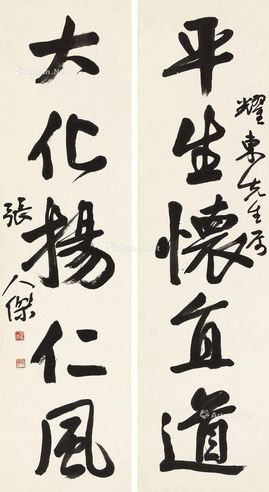 平生懷直道
耀東先生屬
大化揚仁風
張人傑